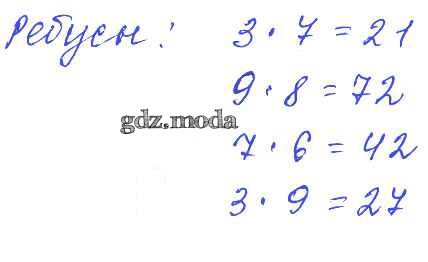 Ребусы: 3 · 7 = 21
9 · 8 = 72
gdz.moda
7 · 6 = 42
3 · 9 = 27